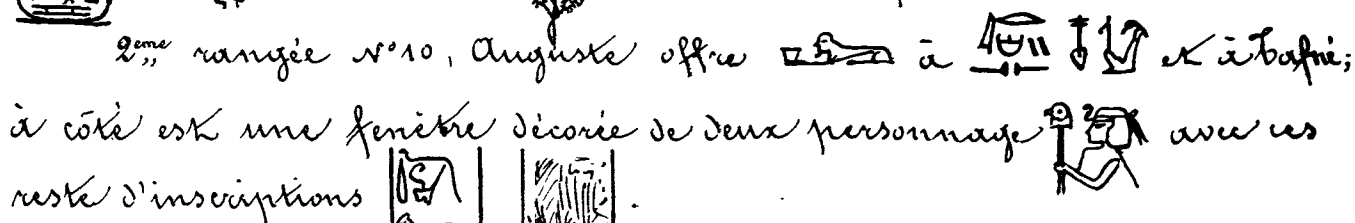 2ème rangée N° 10, Auguste offre à et à Tafné;
à côté est une fenêtre décorée de deux personnage avec ces
reste d'inscriptions .